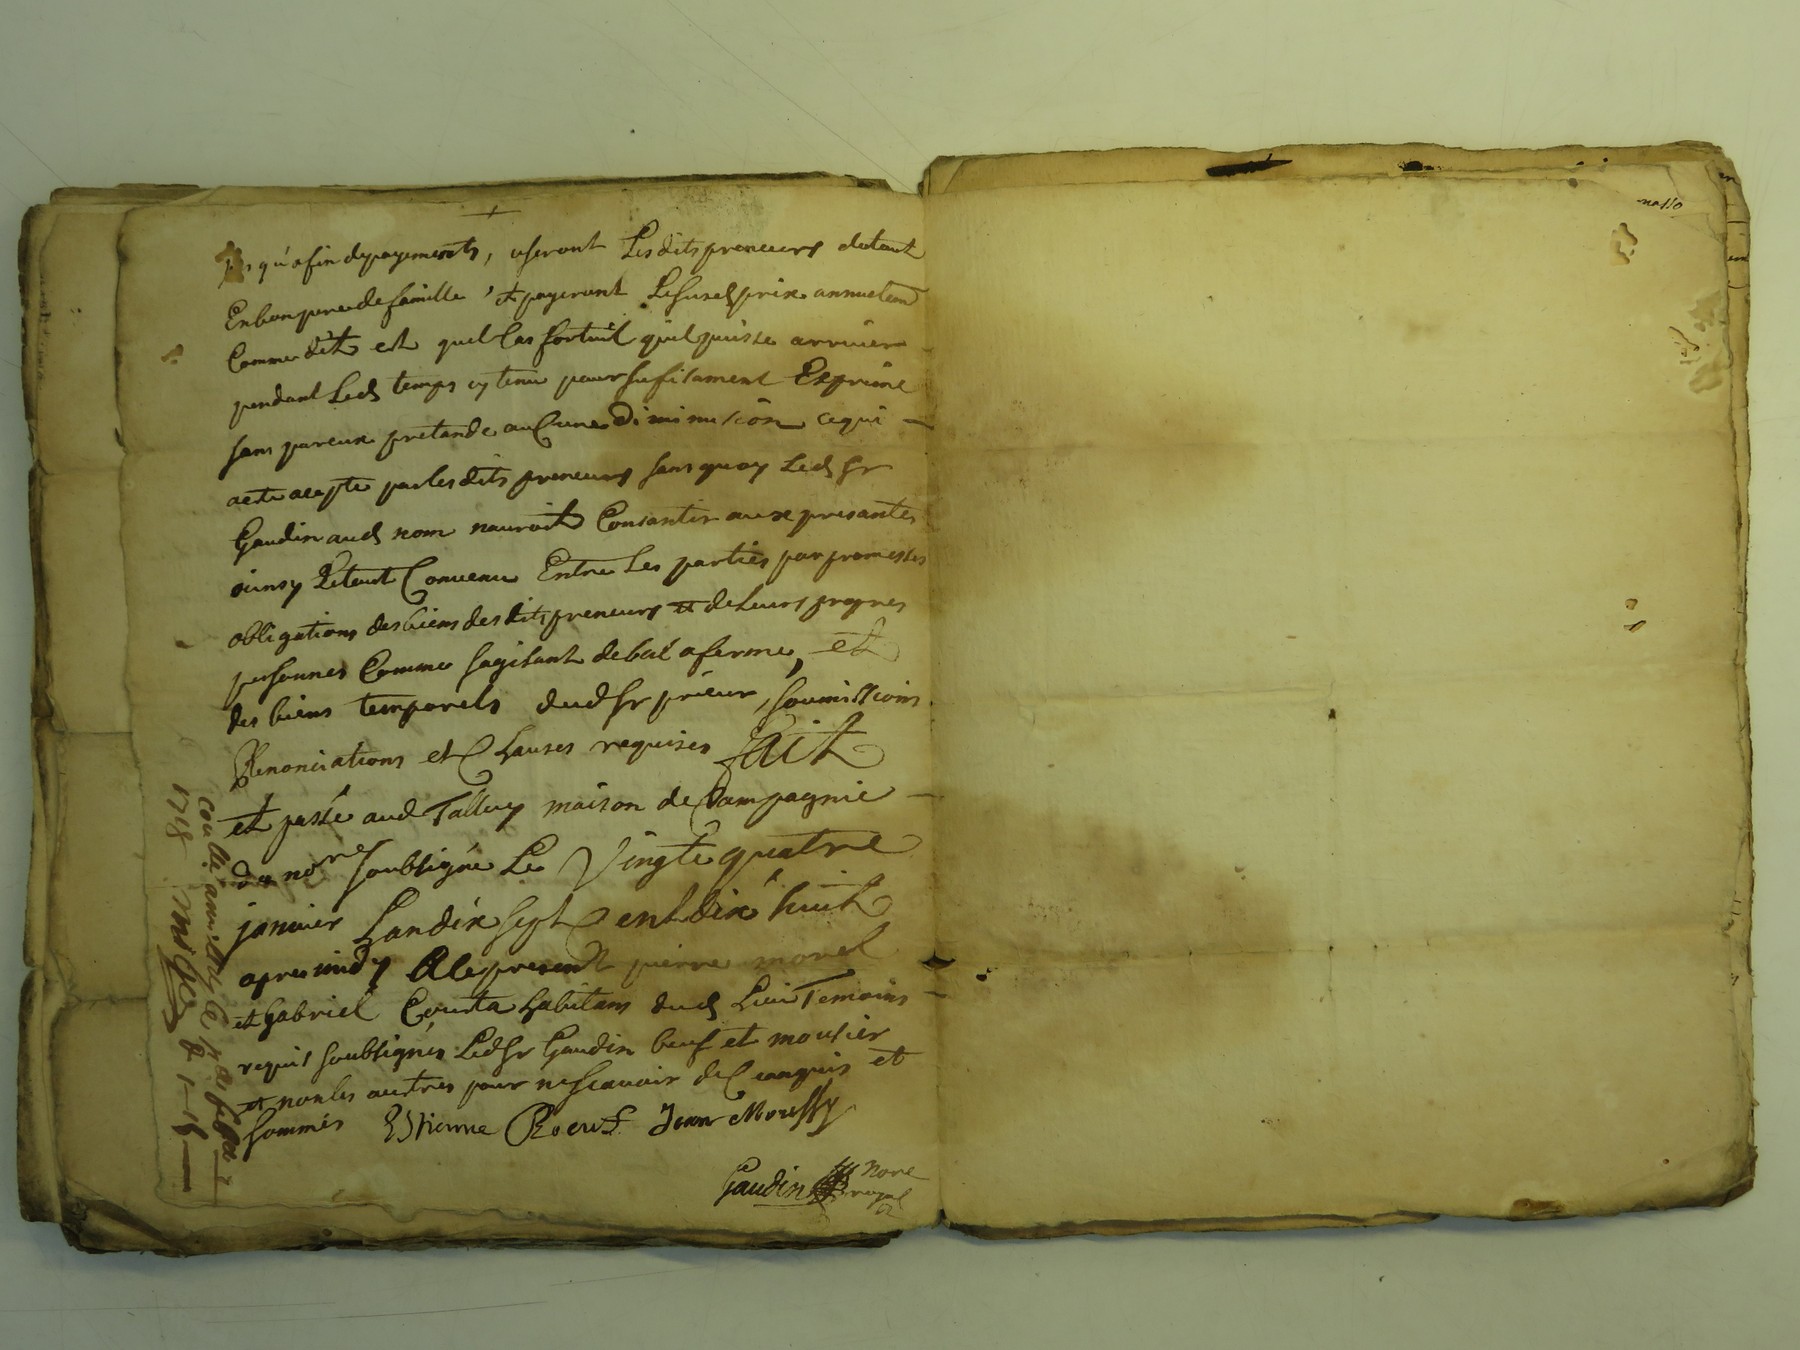 jusqu'a fin de payements, useront Lesdits preneurs dutout
En bon pere de famille, et payeront Le susd prix annuelem
Comme dit est quel Cas fortuit qu'il puisse arriuer
pendant Led temps cy tenu pour sufisament Exprimé
sans pareux pretandre auCune Diminution ce qui
a esté acepté par lesdits preneurs sans quoy Led Sr
Gaudin aud nom nauroit Consantir aux presantes
ainsy Estant Conuenu Entre Les parties par promesses
obligations des biens desdits preneurs et de Leurs propres
personnes Comme sagisant de bail a ferme, et
des biens temporels dud Sr prieur, soumissions
Renonciations et Clauses requises fait
et passé aud Talluy maison de Campagnie
du nore soubsigné Le Vingte quatre
januier Landix sept Cent dix huit
apres midy A le present pierre morel
et Gabriel Courta habitans dud Lieu Temoins
requis soubsignés Led Sr Gaudin beuf et mousier
et non les autres pour ne scauoir de Cenquis et
sommés Estienne Boeuf Jean Moussy
Gaudin nore
royal
1718
na110